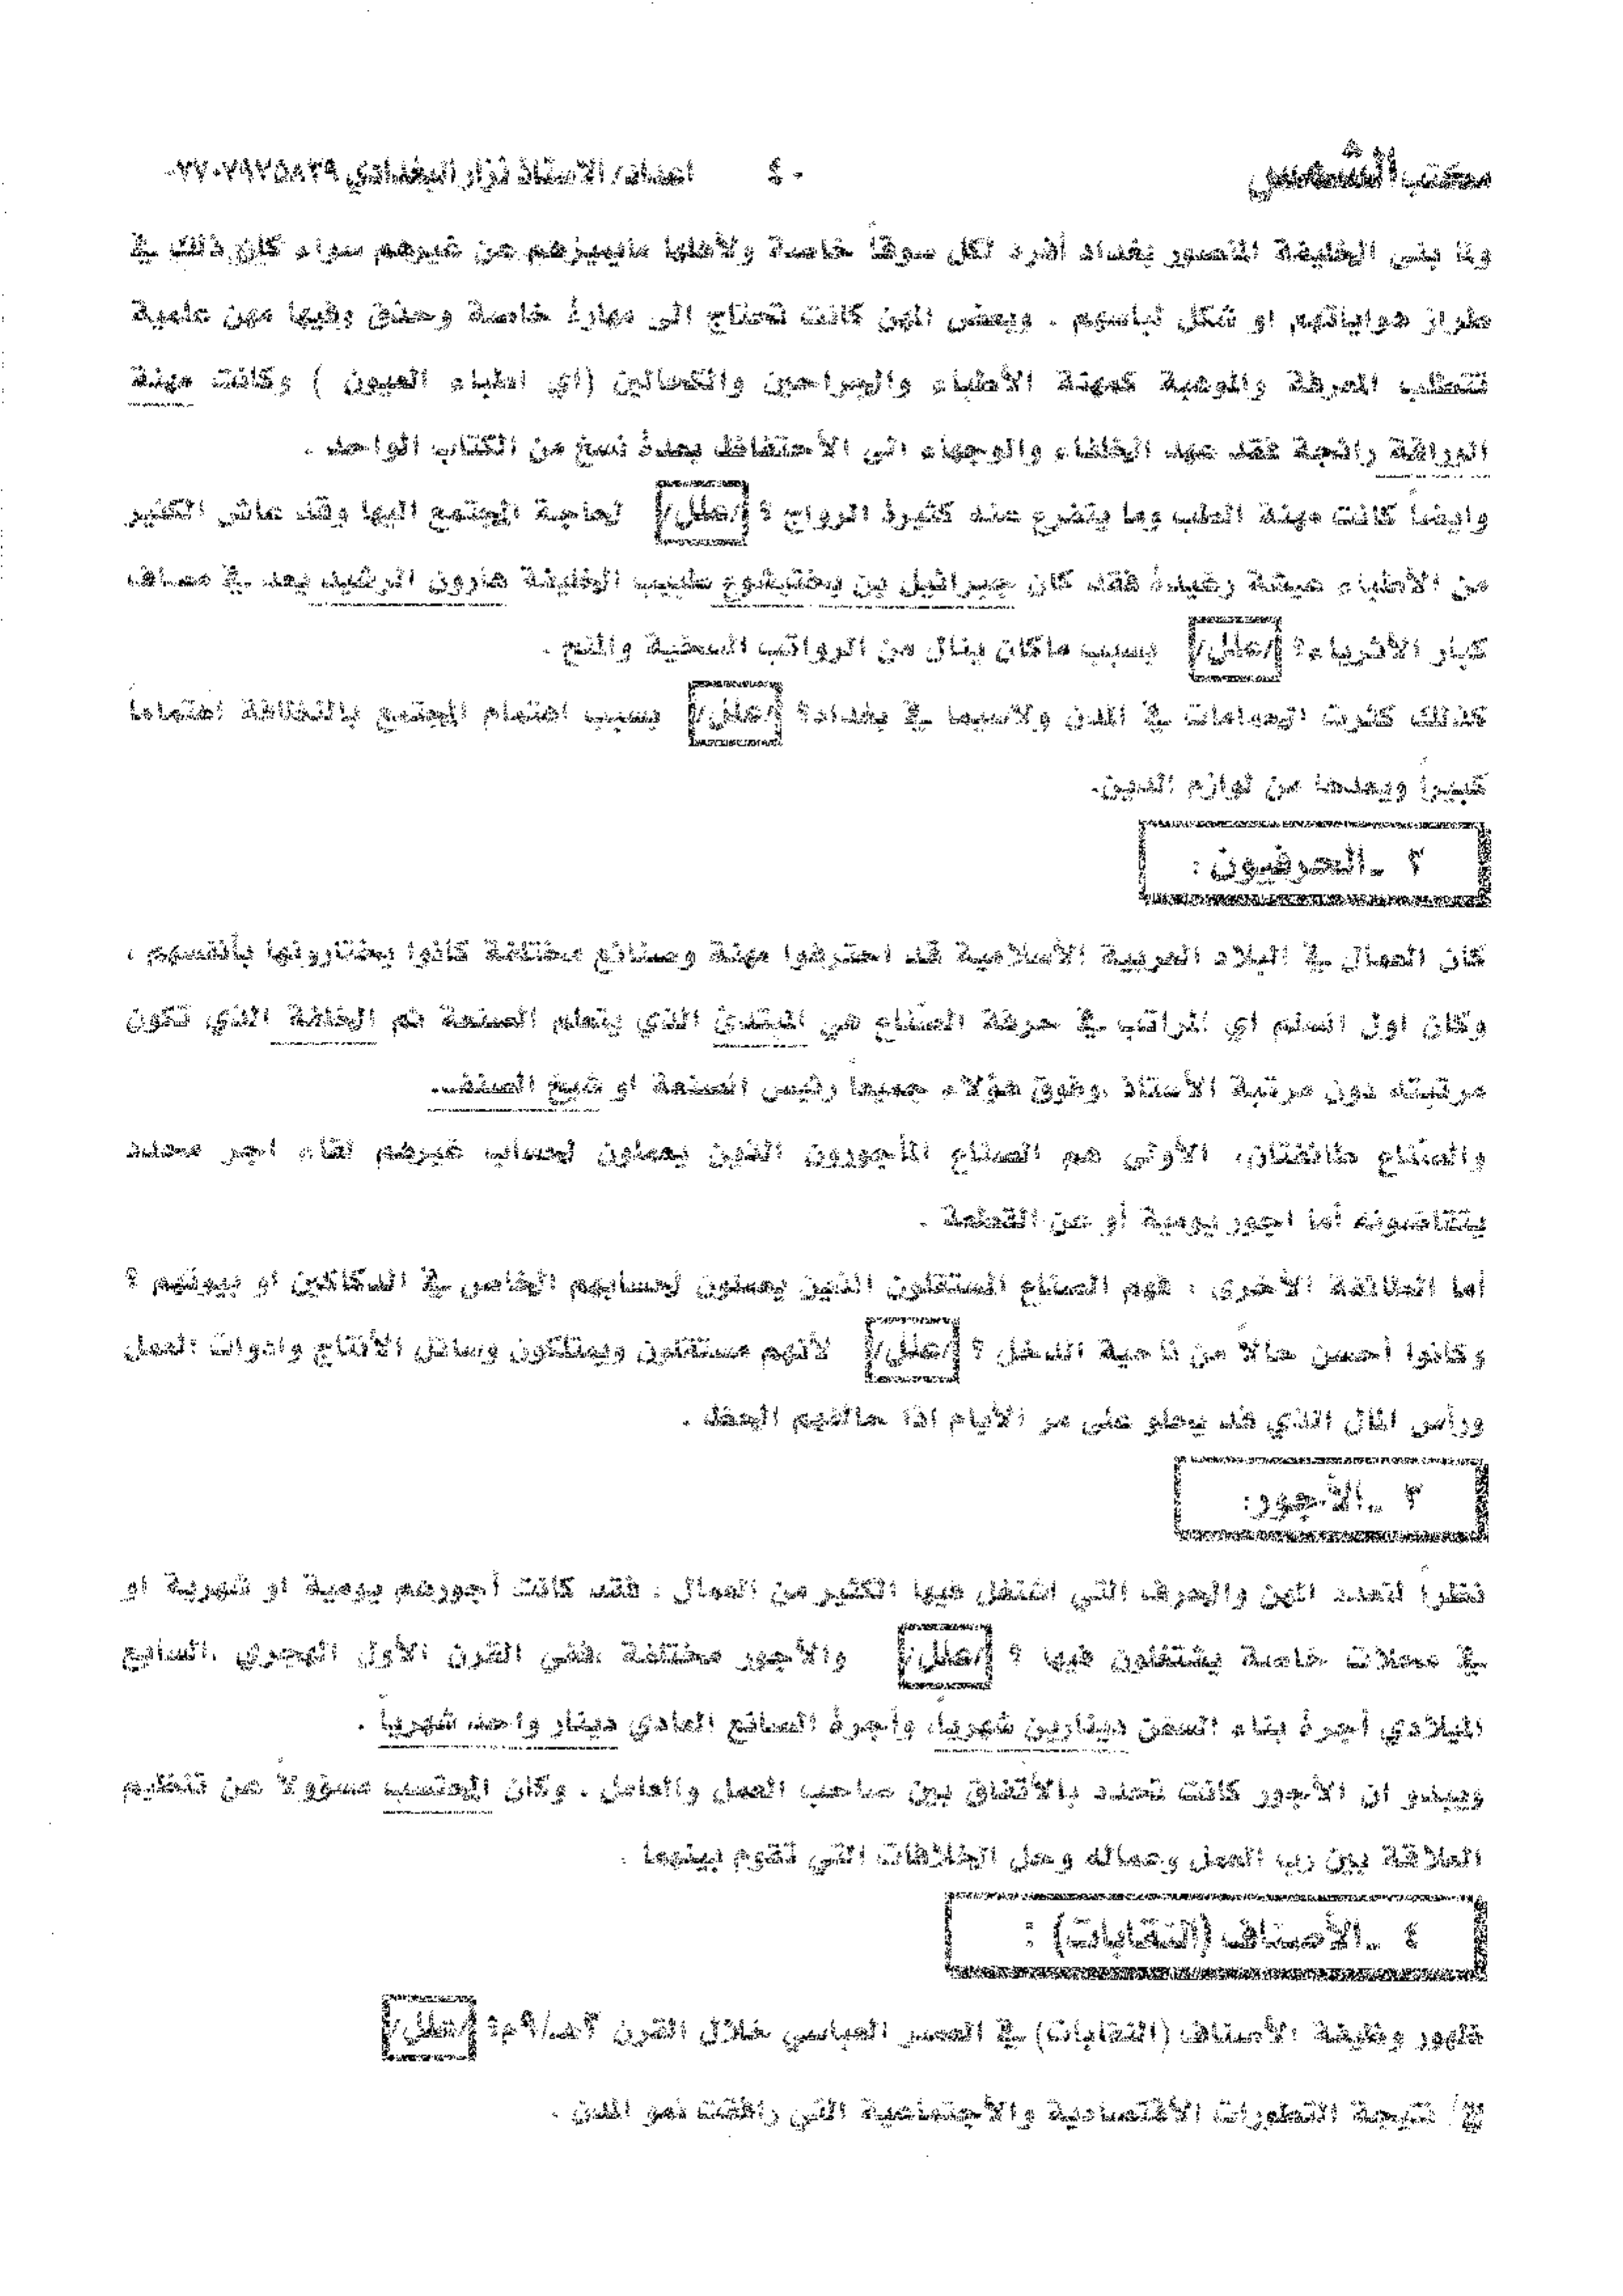 مكتب الشمس
٤٠
اعداد/ الاستاذ نزار البغدادي ٠٧٧٠٧٩٢٥٨٣٩
ولما بنى الخليفة المنصور بغداد أفرد لكل سوقاً خاصة ولأهلها مايميزهم عن غيرهم سواء كان ذلك في
طراز هواياتهم او شكل لباسهم . وبعض المهن كانت تحتاج الى مهارة خاصة وحذق وفيها مهن علمية
تتطلب المعرفة والموهبة كمهنة الأطباء والجراحين والكحالين (اي اطباء العيون ) وكانت مهنة
الوراقة رائجة فقد عهد الخلفاء والوجهاء الى الأحتفاظ بعدة نسخ من الكتاب الواحد .
وايضاً كانت مهنة الطب وما يتفرع عنه كثيرة الرواج ؟ /علل/ لحاجة المجتمع اليها وقد عاش الكثير
من الأطباء عيشة رغيدة فقد كان جبرائيل بن بختيشوع طبيب الخليفة هارون الرشيد يعد في مصاف
كبار الأثرياء؟ /علل/ بسبب ماكان ينال من الرواتب السخية والمنح .
كذلك كثرت الحمامات في المدن ولاسيما في بغداد؟ /علل/ بسبب اهتمام المجتمع بالنظافة اهتماما
كبيراً ويعدها من لوازم الدين.
٢ ـ الحرفيون :
كان العمال في البلاد العربية الأسلامية قد احترفوا مهنة وصنائع مختلفة كانوا يختارونها بأنفسهم ،
وكان اول السلم اي المراتب في حرفة الصناع هي المبتدئ الذي يتعلم الصنعة ثم الخلفة الذي تكون
مرتبته دون مرتبة الأستاذ .وفوق هؤلاء جميعا رئيس الصنعة او شيخ الصنف.
والصناع طائفتان، الأولى هم الصناع المأجورون الذين يعملون لحساب غيرهم لقاء اجر محدد
يتقاضونه أما اجور يومية أو عن القطعة .
أما الطائفة الأخرى : فهم الصناع المستقلون الذين يعملون لحسابهم الخاص في الدكاكين او بيوتهم ؟
وكانوا أحسن حالاً من ناحية الدخل ؟ /علل/ لأنهم مستقلون ويمتلكون وسائل الأنتاج وادوات العمل
ورأس المال الذي قد يعلو على مر الأيام اذا حالفهم الحظ .
٣ ـ الأجور:
نظراً لتعدد المهن والحرف التي اشتغل فيها الكثير من العمال : فقد كانت أجورهم يومية او شهرية او
في محلات خاصة يشتغلون فيها ؟ /علل/ والأجور مختلفة .ففي القرن الأول الهجري .السابع
الميلادي أجرة بناء السفن دينارين شهرياً، وأجرة الصانع العادي دينار واحد شهرياً .
ويبدو ان الأجور كانت تحدد بالأتفاق بين صاحب العمل والعامل . وكان المحتسب مسؤولاً عن تنظيم
العلاقة بين رب العمل وعماله وحل الخلافات التي تقوم بينهما .
٤ ـ الأصناف (النقابات) :
ظهور وظيفة الأصناف (النقابات) في العصر العباسي خلال القرن ٣هـ/٩م؟ /علل/
ج/ نتيجة التطورات الأقتصادية والأجتماعية التي رافقت نمو المدن .